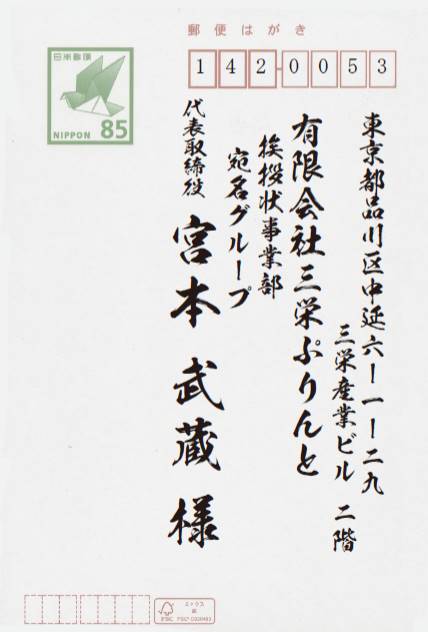 郵便はがき
日本郵便
NIPPON 85
142-0053
東京都品川区中延六ー一ー二九
三栄産業ビル 二階
有限会社三栄ぷりんと
挨拶状事業部
宛名グループ
代表取締役
宮本 武蔵 様
ミックス
紙